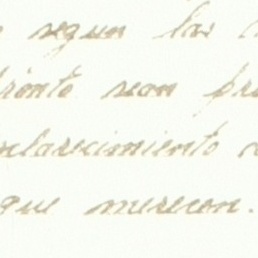 segun las
pronto sean pr
esclarecimiento
que merecen.